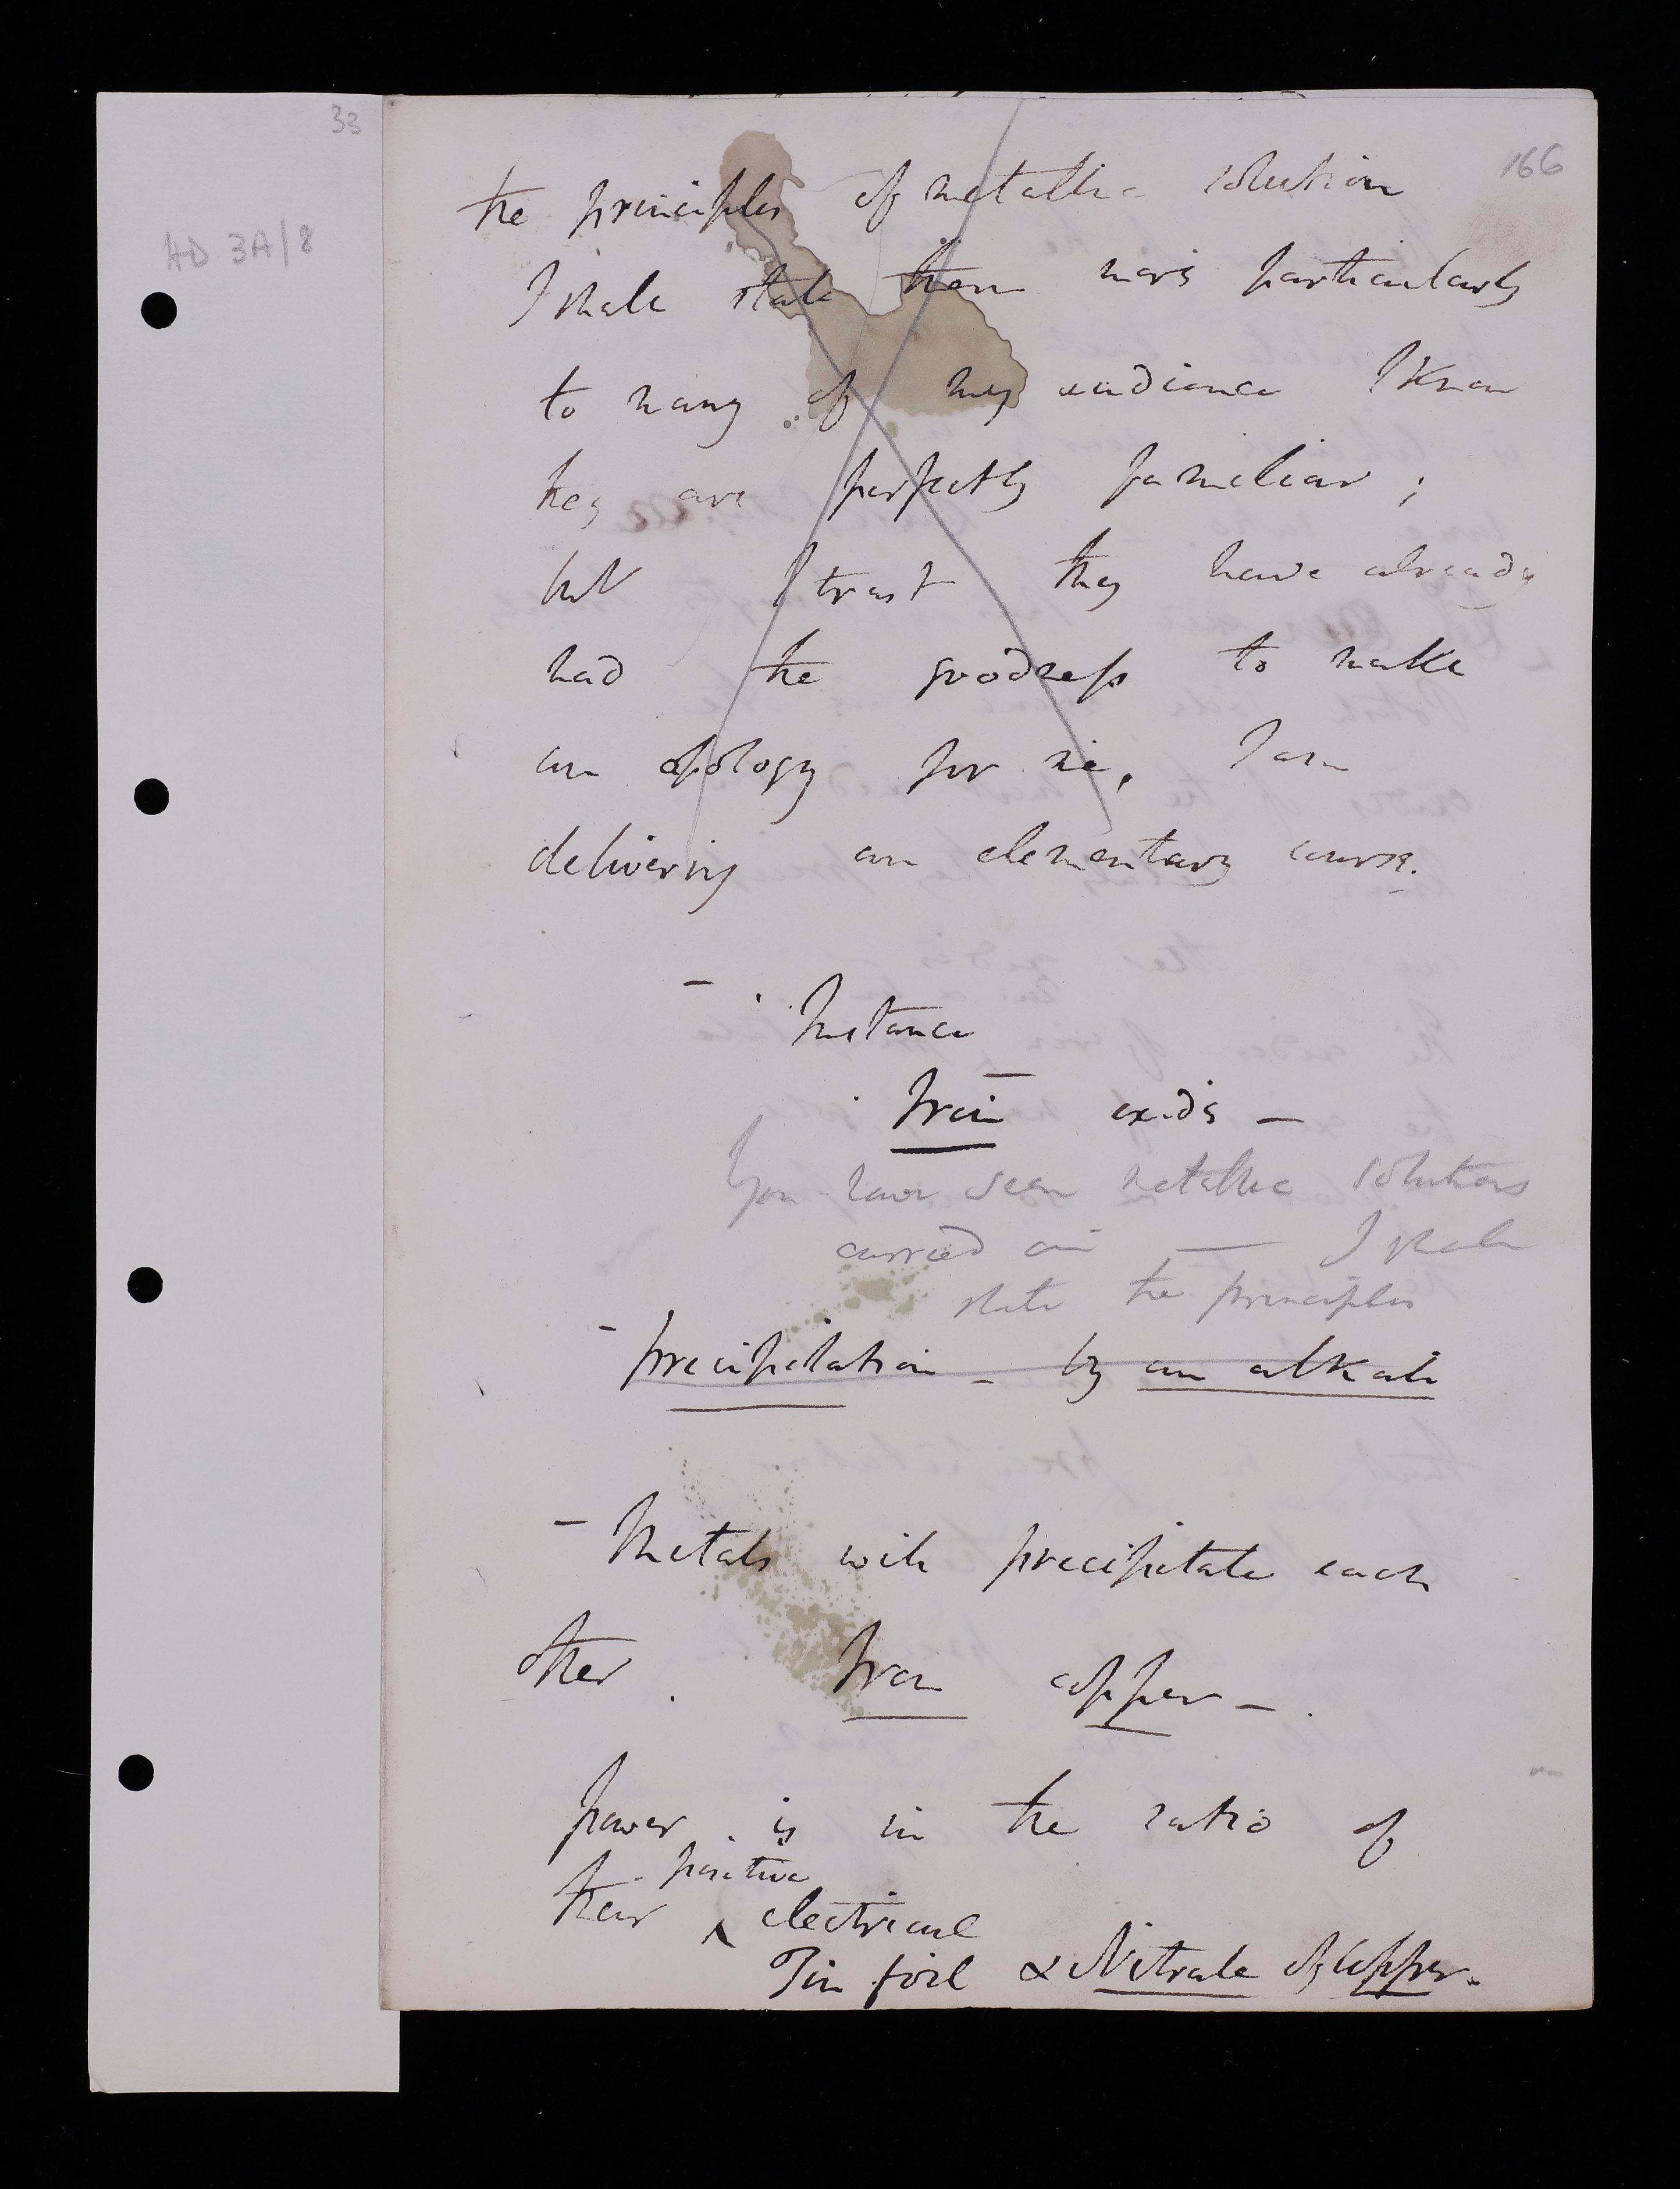 33
166
HD 3A/8
the principles of metallic solution
I shall state them more particularly
to many of my audience I know
they are perfectly familiar ;
but I trust they have already
had the goodness to make
an apology for me, I am
delivering an elementary course.
- Instance
Iron oxide -
You have seen metallic solutions
carried on — I shall
state the principles
- precipitation - by an alkali
- Metals will precipitate each
other . Iron copper -
power is in the ratio of
positive
their ^ electrical
Tin foil & Nitrate of Copper.